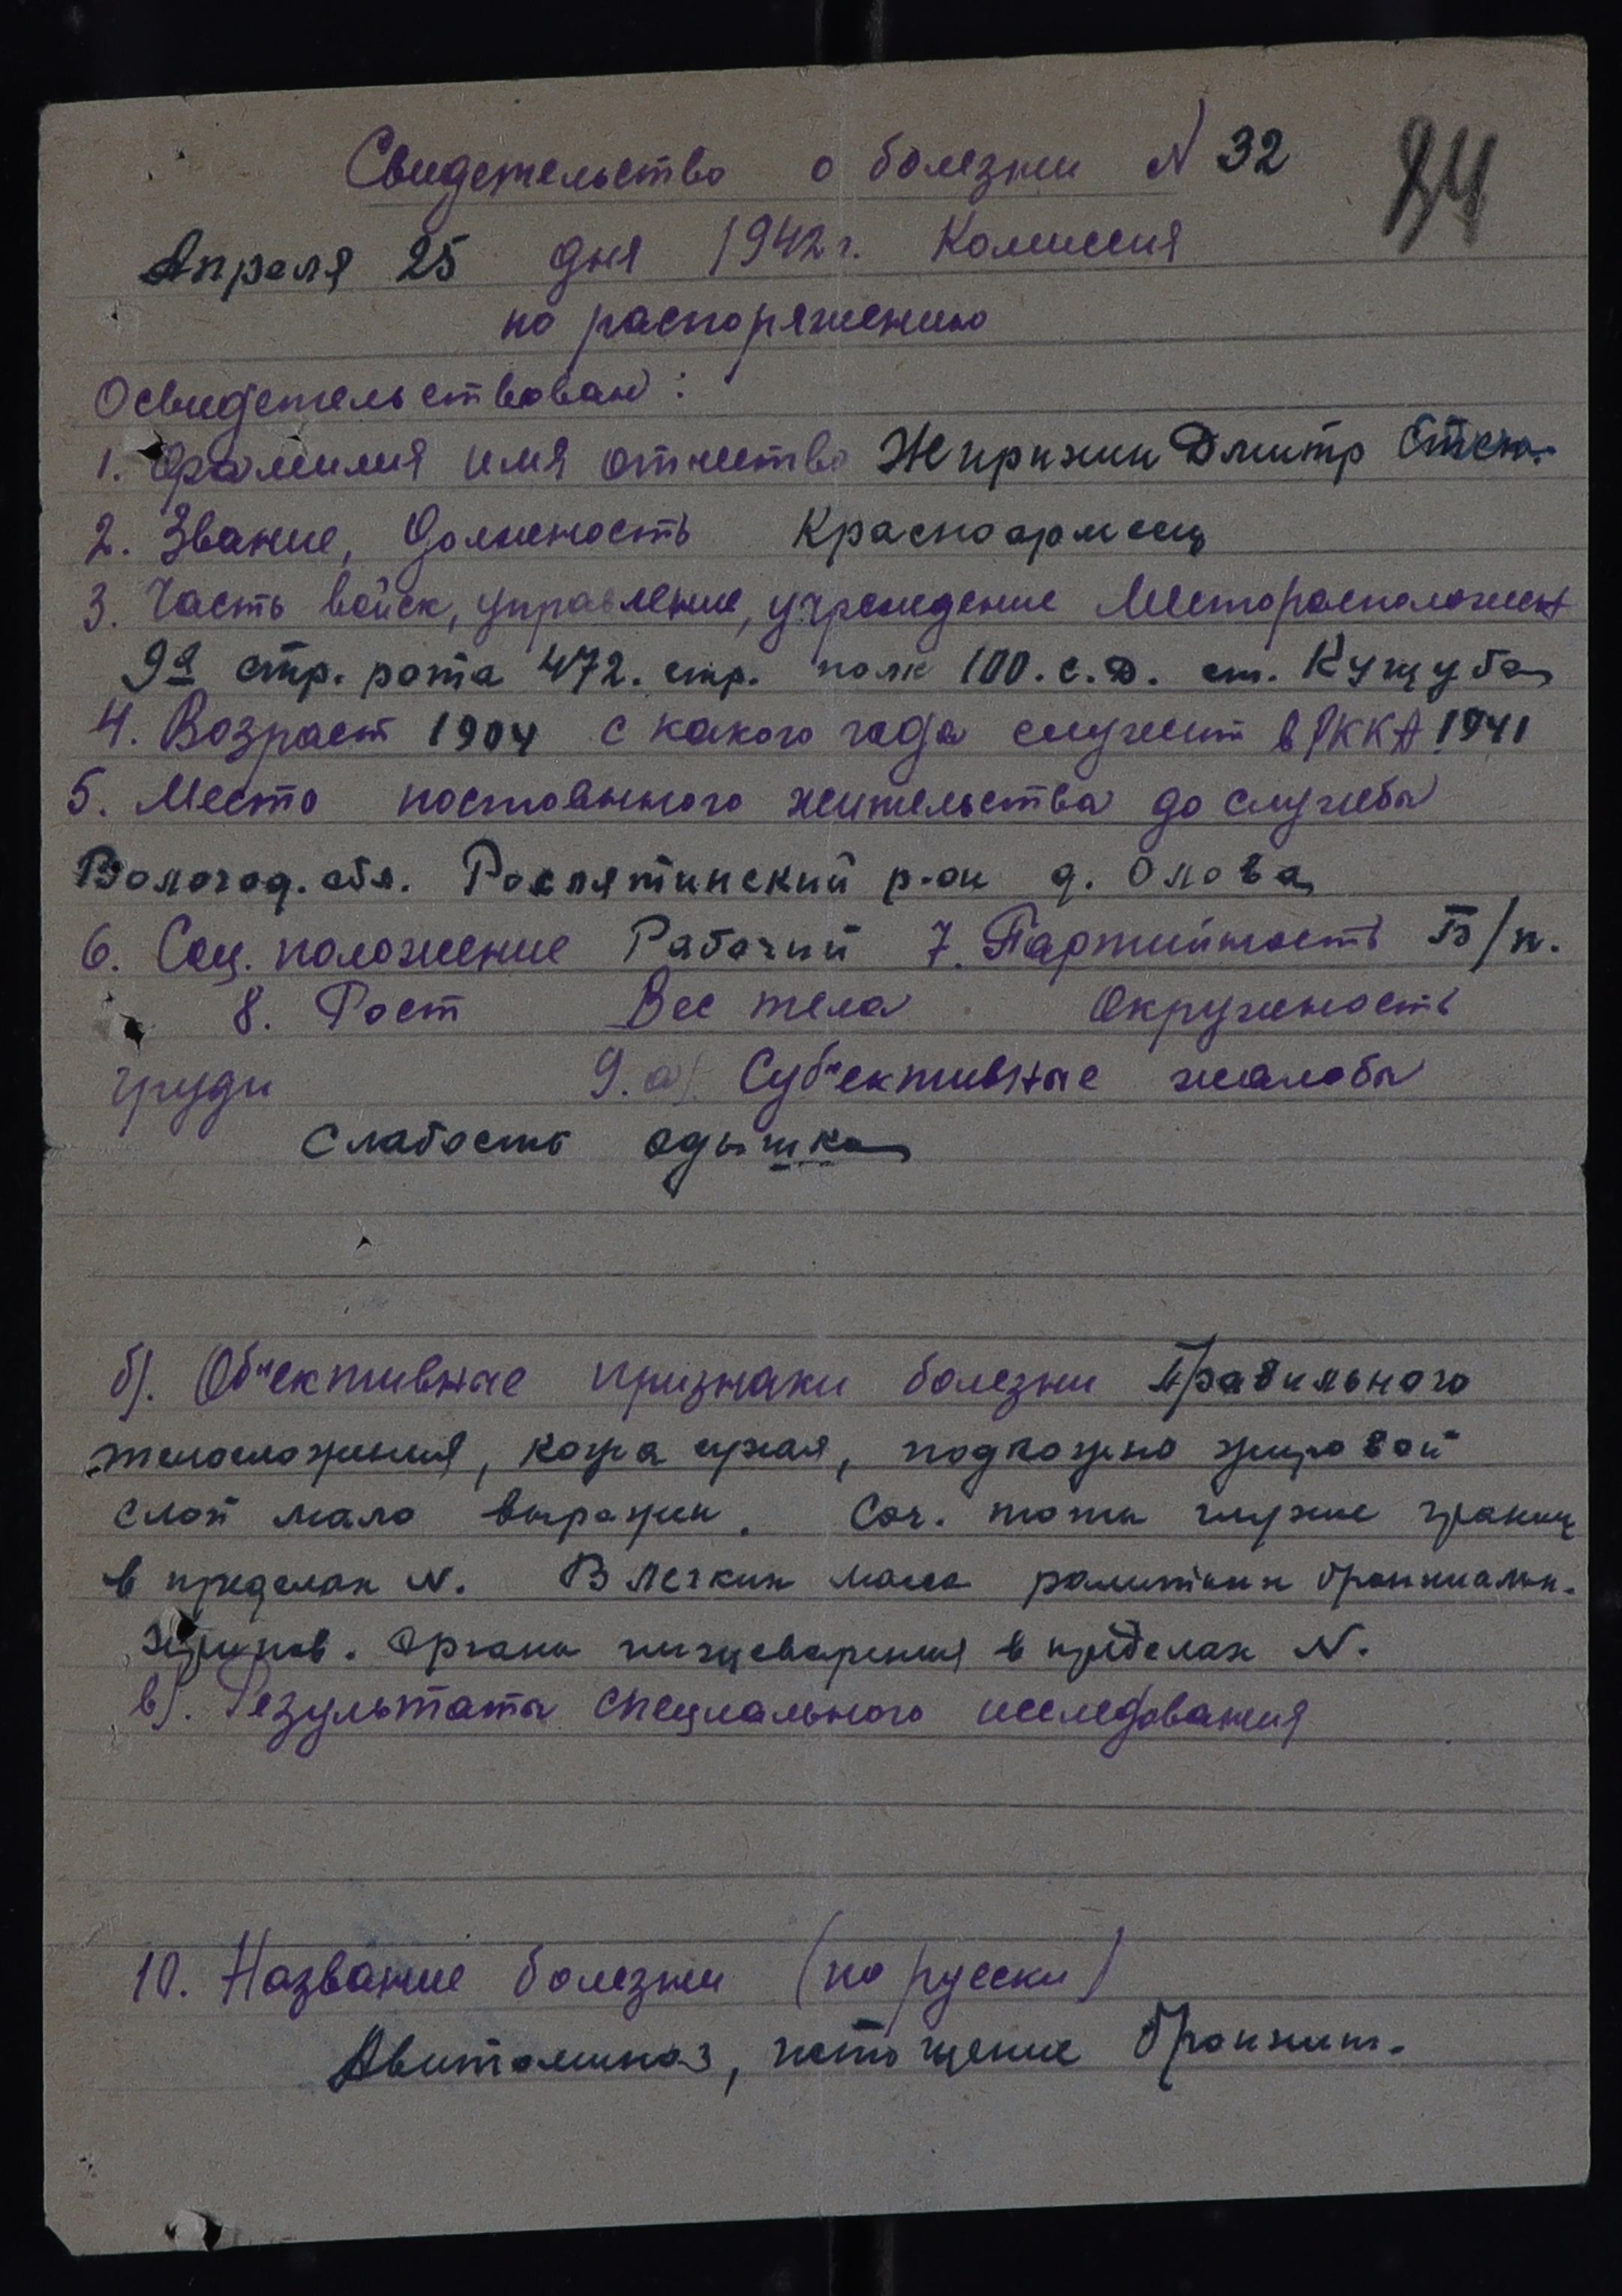 Свидетельство о болезни N 32
84
Апреля 25 дня 1942 г. Комиссия
по распоряжению
Освидетельствован:
1. Фамилия имя отчество Жирихин Дмитр Степ.
2. Звание, должность Красноармеец
3. Часть войск, управление, учреждение Месторасположен
9а стр. рота 472. стр. полк 100. с.д. ст. Кущуба
4. Возраст 1904 с какого года служит в РККА 1941
5. Место постоянного жительства до службы
Вологод. обл. Рослятинский р-он д. Олова
6. Соц. положение Рабочий 7. Партийность Б/п.
8. Рост Вес тела Окружность
груди 9. а). Суб"ективные жалобы
Слабость одышка
б). Об"ективные признаки болезни Правильного
телосложения, кожа сухая, подкожно жировой
слой мало выражен. Сер. тоны глухие границ
в пределах N. В легких масса рассеянных бронхиальн.
хрипов. Органы пищеварения в пределах N.
в). Результаты специального исследования
10. Название болезни (по русски)
Авитаминоз, истощение бронхит.